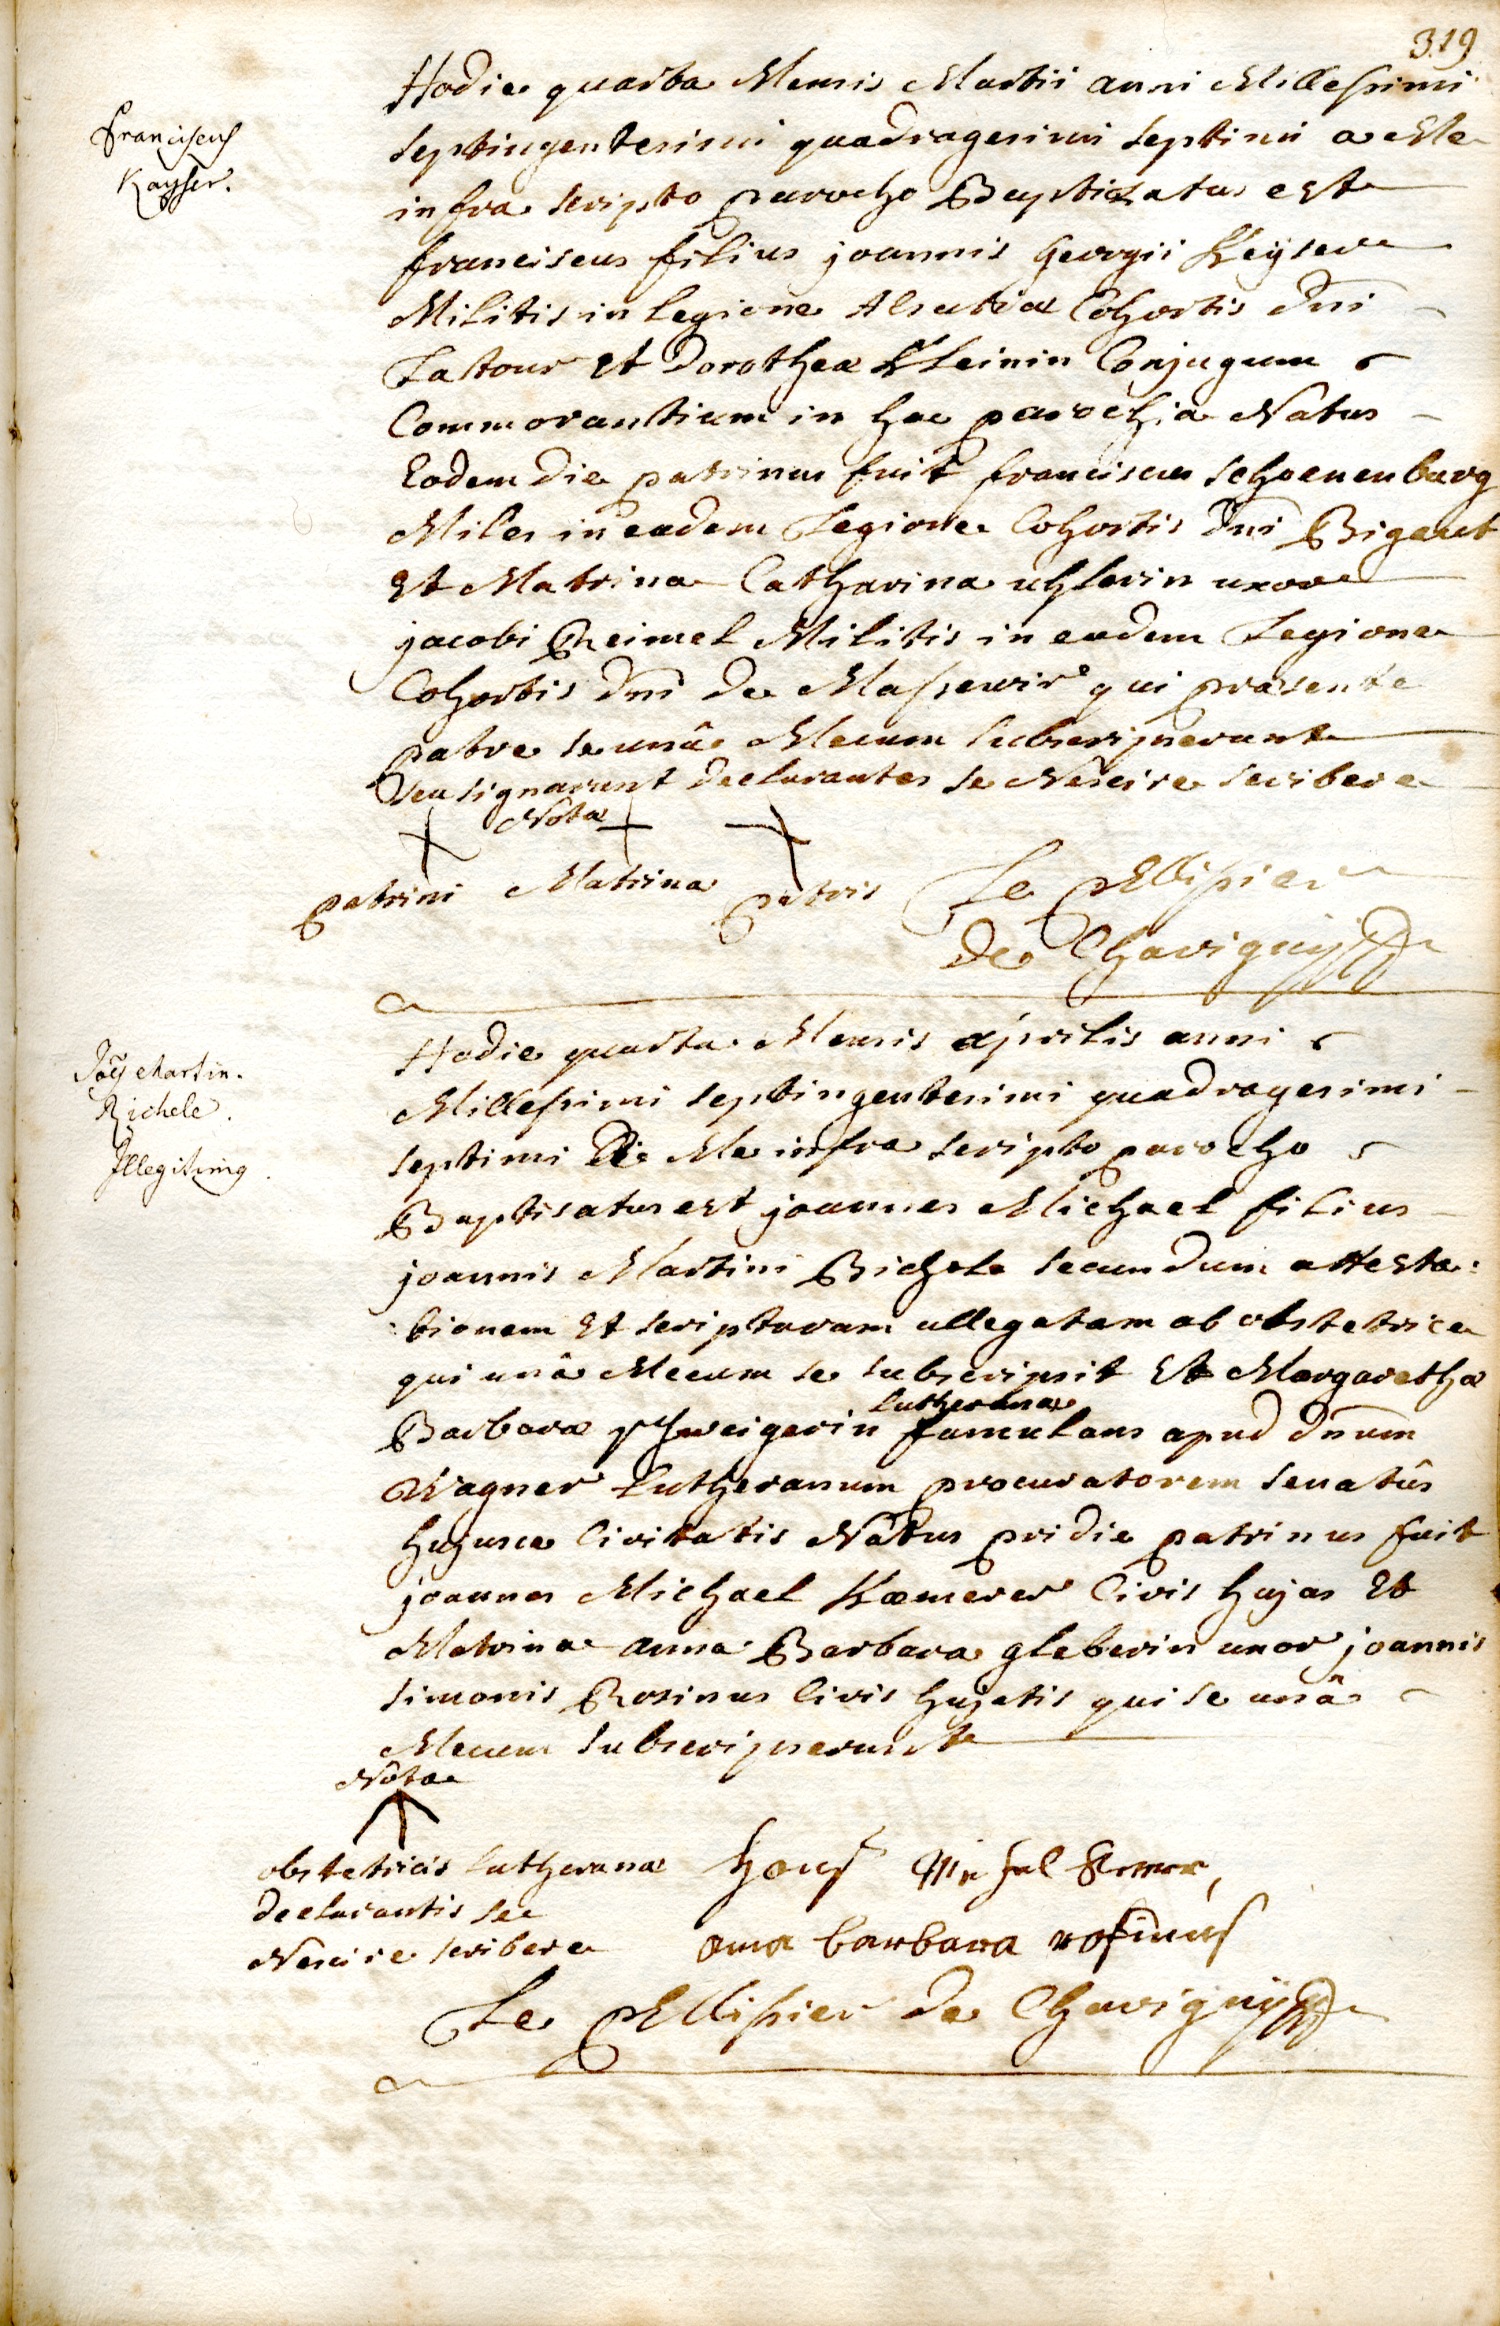 319
Franciscus
Kayser.
Hodie quarta Mensis Martii anni Millessimi
septingentesimi quadragesimi septimi a Me
infra scripto parocho Baptizatus est
franciscus filius joannis Georgii Keyser
Militis in Legione Alsatiæ Cohortis dni
Latour Et dorotheæ Kleinin Conjugum
Commorantium in hac parochia Natus
Eodem die patrinus fuit franciscus schoenenburg
Miles in eadem Legione Cohortis dni Bigeut
Et Matrina Catharina uhlerin uxor
jacobi Reimel Militis in eadem Legione
Cohortis dni de qui præsente
patre se unâ Mecum subscripserunt
seu signarunt declarantes se Nescire scribere
Nota
patrini Matrina patris Le pellissier
de Chavigny
Joës Martin.
Richele.
Illegitimus
Hodie quarta Mensis aprilis anni
Millessimi septingentesimi quadragesimi
septimi Me infra scripto parocho
Baptisatus est joannes Michael filius
joannis Martini Bichele secundum attesta:
:tionem Et scripturam allegatam ab obstetrice
qui unâ Mecum se subscripsit Et Margaretha
lutherana
Barbara schweigerin famulans apud dnum
Wagner Lutheranum procuratorem senatûs
hujusce Civitatis Natus pridie patrinus fuit
joannes Michael Kæmerer Civis hujas Et
Matrina anna Barbara gleberin uxor joannis
simonis Rosinus Civis hujatis qui se unâ
Mecum subscripserunt
Nota
obstetricis lutheranæ Hans Michel
declarantis se
Nescire scribere anna barbara rosinus
Le pellissier de Chavigny